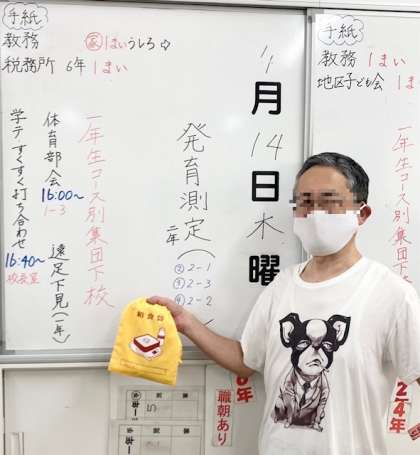 手紙
教務
㊞1まいうしろ⇨
税務所 6年 1まい
11月14日木曜
発育測定(二年)
②2-1
③2-3
④2-2
一年生コース別集団下校
遠足下見(一年)
体育部会
16:00〜
1-3
学テすくすく打ち合わせ
16:40〜
校長室
手紙
教務 1まい
地区子ども会 1ま
給食袋
職朝あり
2/4年